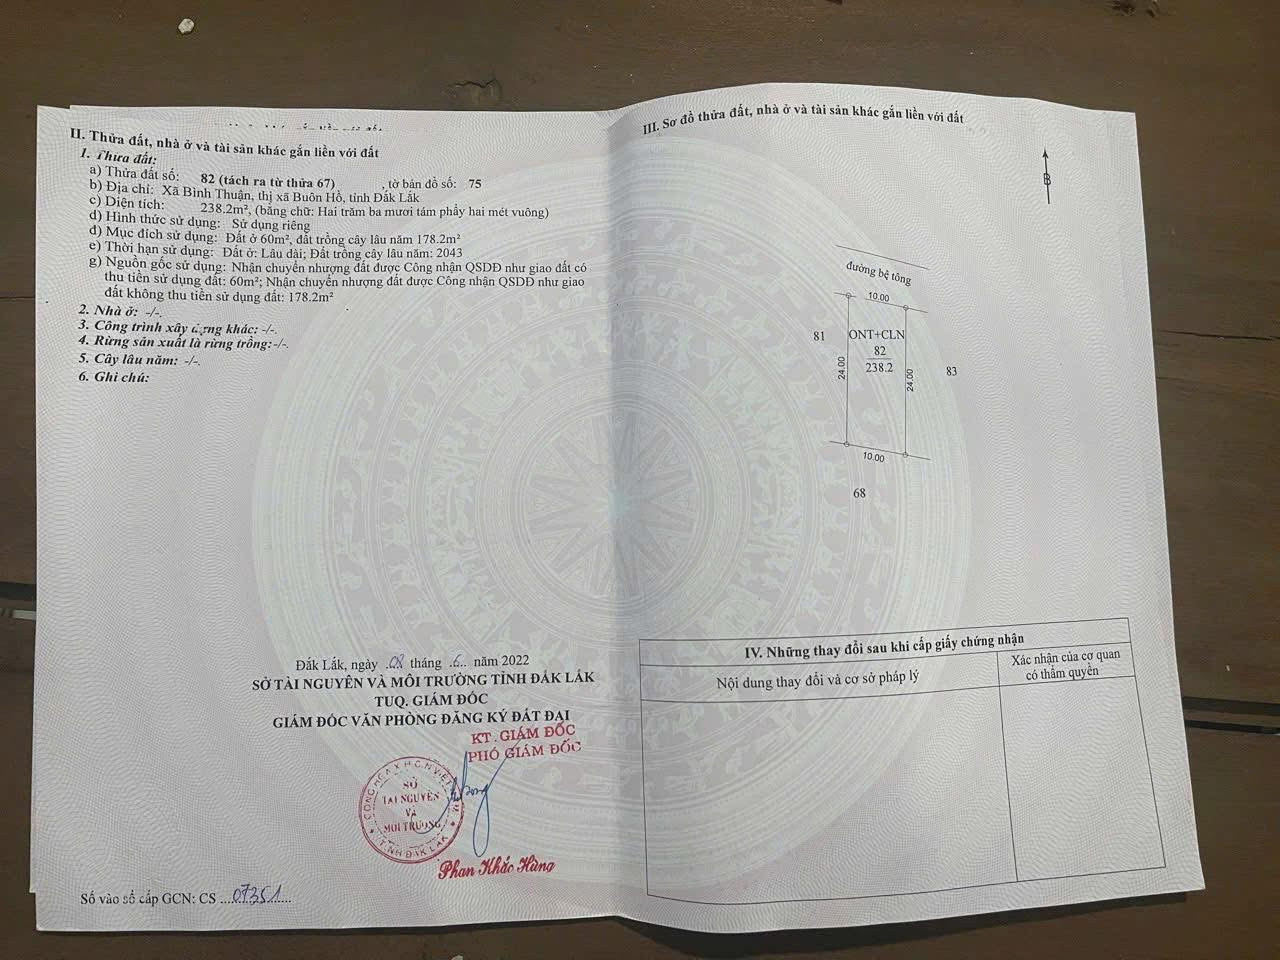 II. Thửa đất, nhà ở và tài sản khác gắn liền với đất
1. Thửa đất:
a) Thửa đất số: 82 (tách ra từ thửa 67), tờ bản đồ số: 75
b) Địa chỉ: Xã Bình Thuận, thị xã Buôn Hồ, tỉnh Đắk Lắk
c) Diện tích: 238.2m², (bằng chữ: Hai trăm ba mươi tám phẩy hai mét vuông)
d) Hình thức sử dụng: Sử dụng riêng
đ) Mục đích sử dụng: Đất ở 60m², đất trồng cây lâu năm 178.2m²
e) Thời hạn sử dụng: Đất ở: Lâu dài; Đất trồng cây lâu năm: 2043
g) Nguồn gốc sử dụng: Nhận chuyển nhượng đất được Công nhận QSDĐ như giao đất có
thu tiền sử dụng đất: 60m²; Nhận chuyển nhượng đất được Công nhận QSDĐ như giao
đất không thu tiền sử dụng đất: 178.2m²
2. Nhà ở: -/-.
3. Công trình xây dựng khác: -/-.
4. Rừng sản xuất là rừng trồng:-/-.
5. Cây lâu năm: -/-.
6. Ghi chú:
Đắk Lắk, ngày .08 tháng .6.. năm 2022
SỞ TÀI NGUYÊN VÀ MÔI TRƯỜNG TỈNH ĐẮK LẮK
TUQ. GIÁM ĐỐC
GIÁM ĐỐC VĂN PHÒNG ĐĂNG KÝ ĐẤT ĐAI
KT. GIÁM ĐỐC
PHÓ GIÁM ĐỐC
CỘNG HÒA X.H.C.N VIỆT NAM
SỞ
TÀI NGUYÊN
VÀ
MÔI TRƯỜNG
TỈNH ĐẮK LẮK
Phan Khắc Hùng
Số vào sổ cấp GCN: CS ...07351...
III. Sơ đồ thửa đất, nhà ở và tài sản khác gắn liền với đất
B
đường bê tông
10.00
81
ONT+CLN
82
238.2
24.00
24.00
83
10.00
68
IV. Những thay đổi sau khi cấp giấy chứng nhận
Nội dung thay đổi và cơ sở pháp lý
Xác nhận của cơ quan
có thẩm quyền